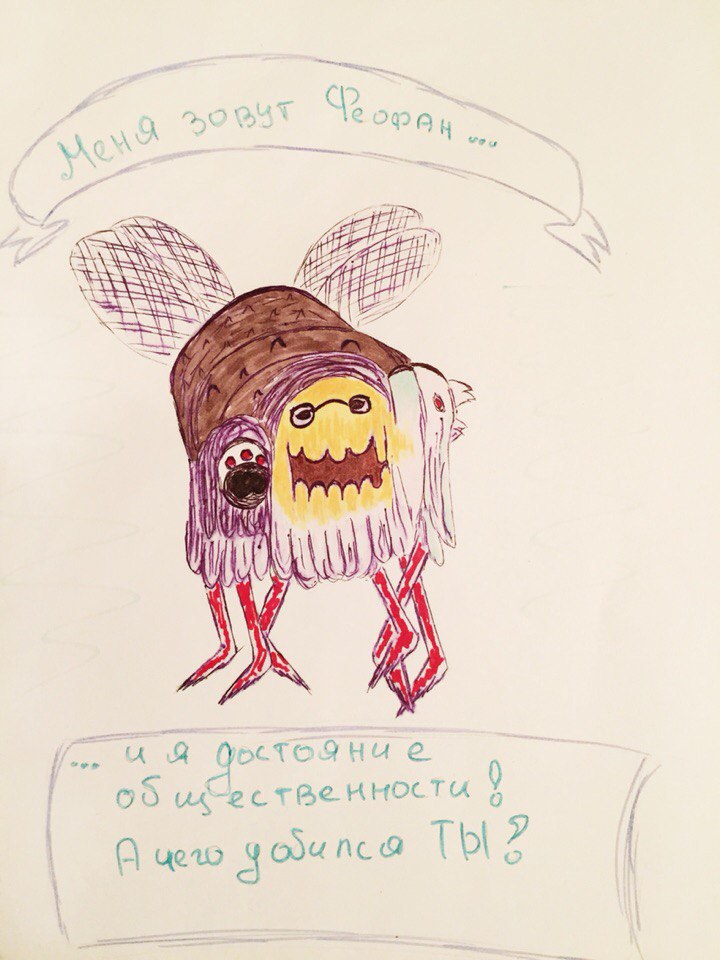 Меня зовут Феофан...
... и я достояние
общественности!
А чего добился ТЫ?